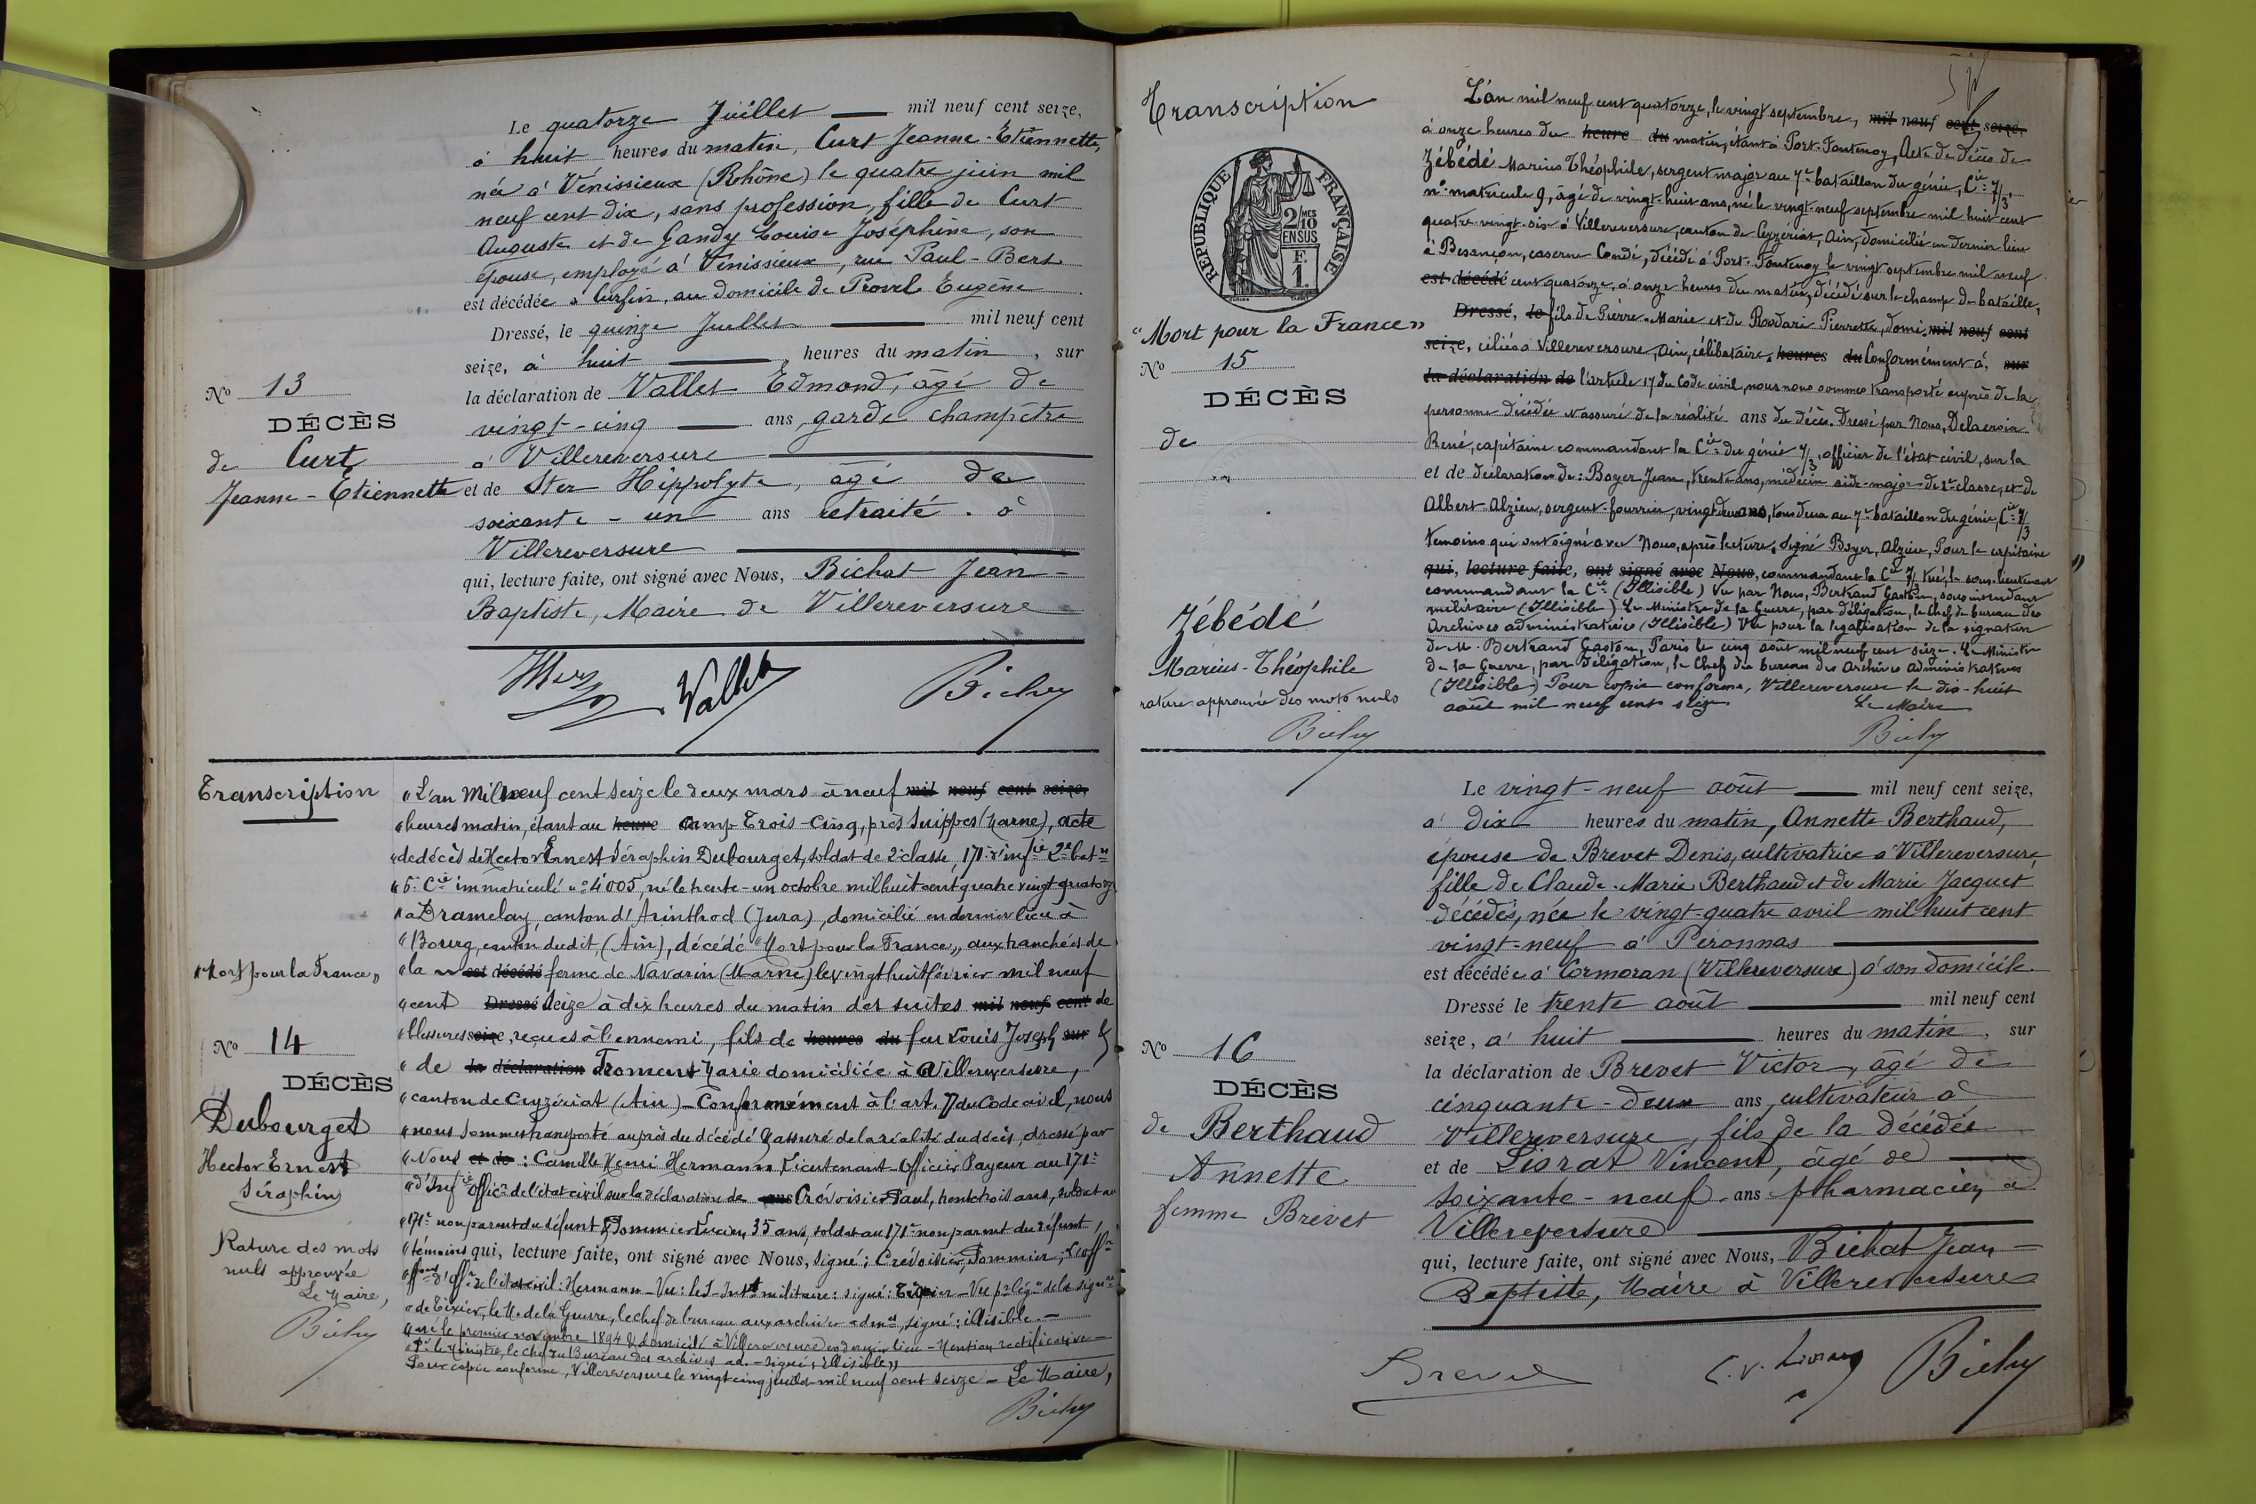 Le quatorze Juillet mil neuf cent seize,
à huit heures du matin, Curt Jeanne-Etiennette,
née à Vénissieux (Rhône) le quatre juin mil
neuf cent dix, sans profession, fille de Curt
Auguste et de Gandy Louise Joséphine, son
épouse, employé à Vénissieux, rue Paul-Bert
est décédée à Curfin, au domicile de Eugène
Dressé, le quinze Juillet mil neuf cent
seize, à huit heures du matin, sur
No 13
la déclaration de Vallet Edmond, âgé de
DÉCÈS
vingt-cinq ans, garde champêtre
de Curt
à Villereversure
Jeanne-Etiennette
et de Hippolyte, âgé de
soixante-un ans retraité. à
Villereversure
qui, lecture faite, ont signé avec Nous, Bichat Jean-
Baptiste, Maire de Villereversure
Vallet
Transcription
"L'an Mil neuf cent seize le deux mars à neuf mil neuf cent seize,
"heures matin, étant au heure camp Trois-Cinq, près Suippes (Marne), acte
"de décès de Hector Ernest Séraphin Dubourget, soldat de 2e classe, 171e d'infie 2e batn
"5e Cie immatriculé no 4005, né le trente-un octobre mil huit cent quatre vingt quatorze
"à Dramelay, canton d'Arinthod (Jura), domicilié en dernier lieu à
"Bourg, canton dudit, (Ain), décédé "Mort pour la France", aux tranchées de
"Mort pour la France"
"la est décédé ferme de Navarin (Marne) le vingt huit février mil neuf
"cent Dressé seize à dix heures du matin des suites mil neuf cent de
"blessures seize, reçues à l'ennemi, fils de heures du feu Louis Joseph sur &
No 14
"de la déclaration Froment Marie domiciliée à Villereversure,
DÉCÈS
"canton de Ceyzériat (Ain) - Conformément à l'art. 77 du Code civil, nous
Dubourget
"nous sommes transporté auprès du décédé & assuré de la réalité du décès, dressé par
Hector Ernest
"Nous et de : Camille Henri Hermann Lieutenant-Officier Payeur au 171e
Séraphin
"d'Infie offier de l'état civil sur la déclaration de ans Crévoisier Paul, trente trois ans, soldat au
"171e non parent du défunt & Sommier Lucien, 35 ans, soldat au 171e non parent du défunt,
Rature des mots
"témoins qui, lecture faite, ont signé avec Nous, signé: Crévoisier, Sommier,
nuls approuvée
de l'état civil: Hermann - Vu: le S-Intt militaire: signé: Tixier - Vu pr légn de la signre
Le Maire,
"de Tixier, le Mre de la Guerre, le chef de bureau aux archives admves, signé: illisible. -
"né le premier novembre 1894 & domicilié à Villereversure en dernier lieu - Mention rectificative -
"Pr le ministre, le chef du Bureau des archives ad. - signé, illisible"
Pour copie conforme, Villereversure le vingt cinq juillet mil neuf cent seize - Le Maire,
Transcription
L'an mil neuf cent quatorze, le vingt septembre, mil neuf cent seize,
à onze heures du heure du matin, étant à Port-Fontenoy, Acte de décès de
Zébédé Marius Théophile, sergent major au 7e bataillon du génie, Cie 7/3,
no matricule 9, âgé de vingt-huit ans, né le vingt-neuf septembre mil huit cent
quatre-vingt-six à Villereversure, canton de Ceyzériat, Ain, domicilié en dernier lieu
à Besançon, caserne Condé, décédé à Port-Fontenoy le vingt septembre mil neuf
est décédé cent quatorze, à onze heures du matin, décédé sur le champ de bataille,
RÉPUBLIQUE FRANÇAISE
2/10 MES EN SUS
F. 1.
Dressé, le fils de Pierre-Marie et de Pierrette, domi- mil neuf cent
"Mort pour la France"
seize, ciliés à Villereversure, Ain, célibataire. heures du Conformément à, sur
No 15
la déclaration de l'article 77 du Code civil, nous nous sommes transporté auprès de la
DÉCÈS
personne décédée & assuré de la réalité ans du décès. Dressé par Nous, Delacroix
de
René, capitaine commandant la Cie du génie 7/3, officier de l'état civil, sur la
et de déclaration de: Boyer Jean, trente ans, médecin aide-major de 2e classe, et de
Albert Alzieu, sergent-fourrier, vingt-deux ans, tous deux au 7e bataillon du génie, Cie 7/3
témoins qui ont signé avec Nous, après lecture. Signé Boyer, Alzieu, Pour le capitaine
qui, lecture faite, ont signé avec Nous, commandant la Cie 7/3 tué, le sous-lieutenant
commandant la Cie (Illisible) Vu par Nous, Bertrand Gaston, sous-intendant
Zébédé
militaire (Illisible) Le Ministre de la Guerre, par délégation, le Chef de bureau des
Archives administratives (Illisible) Vu pour la légalisation de la signature
de M. Bertrand Gaston, Paris le cinq août mil neuf cent seize. Le Ministre
Marius-Théophile
de la Guerre, par délégation, le Chef du bureau des Archives administratives
(Illisible) Pour copie conforme, Villereversure le dix-huit
rature approuvée des mots nuls
août mil neuf cent seize. Le Maire
Le vingt-neuf août mil neuf cent seize,
à dix heures du matin, Annette Berthaud,
épouse de Brevet Denis, cultivatrice à Villereversure,
fille de Claude-Marie Berthaud et de Marie Jacquet
décédés, née le vingt-quatre avril mil huit cent
vingt-neuf à Péronnas
est décédée à Cormoran (Villereversure) à son domicile.
Dressé le trente août mil neuf cent
No 16
seize, à huit heures du matin, sur
DÉCÈS
la déclaration de Brevet Victor, âgé de
cinquante-deux ans, cultivateur à
de Berthaud
Villereversure, fils de la décédée
Annette
et de Vincent, âgé de
femme Brevet
soixante-neuf ans pharmacien à
Villereversure
qui, lecture faite, ont signé avec Nous, Bichat Jean-
Baptiste, Maire à Villereversure
Brevet